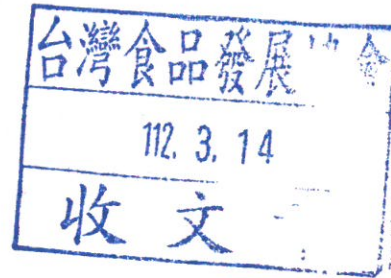 台灣食品發展協會
112. 3. 14
收文